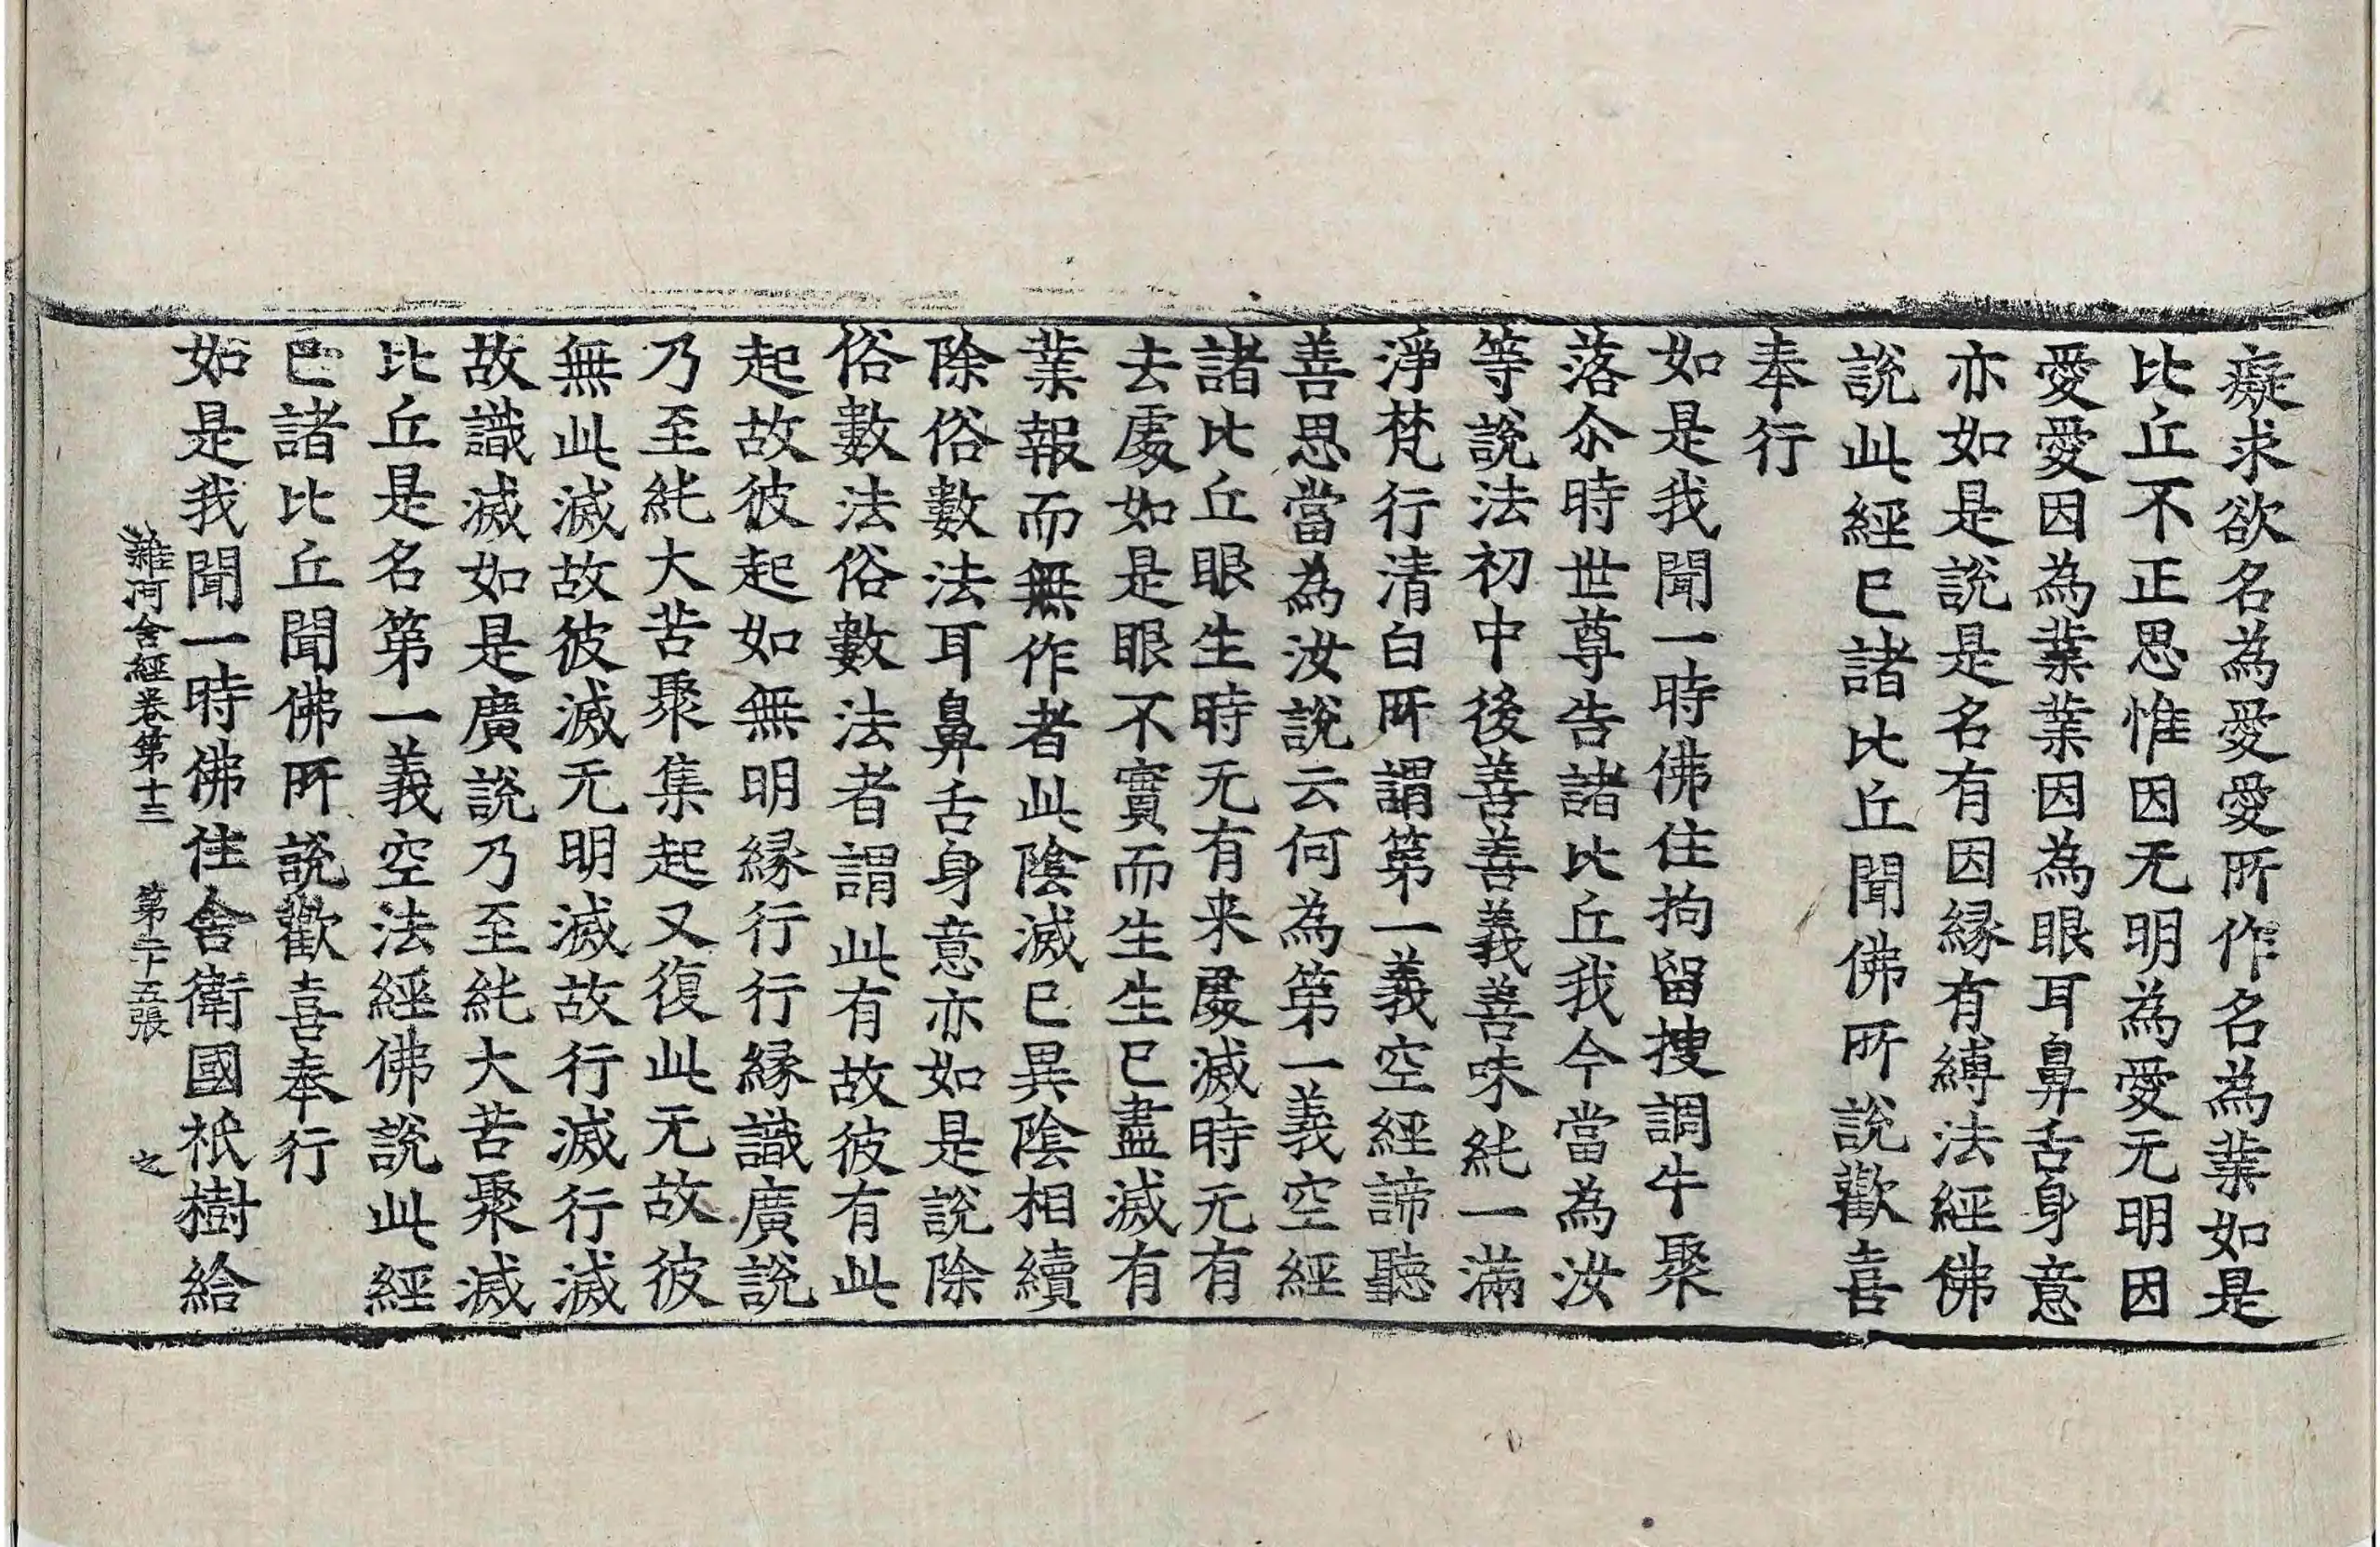 癡求欲名為愛愛所作名為業如是
比丘不正思惟因无明為愛无明因
愛愛因為業業因為眼耳鼻舌身意
亦如是說是名有因緣有縛法經佛
說此經已諸比丘聞佛所說歡喜
奉行
如是我聞一時佛住拘留搜調牛聚
落尒時世尊告諸比丘我今當為汝
等說法初中後善善義善味純一滿
淨梵行清白所謂第一義空經諦聽
善思當為汝說云何為第一義空經
諸比丘眼生時无有来處滅時无有
去處如是眼不實而生生已盡滅有
業報而無作者此陰滅已異陰相續
除俗數法耳鼻舌身意亦如是說除
俗數法俗數法者謂此有故彼有此
起故彼起如無明緣行行緣識廣說
乃至純大苦聚集起又復此无故彼
無此滅故彼滅无明滅故行滅行滅
故識滅如是廣說乃至純大苦聚滅
比丘是名第一義空法經佛說此經
已諸比丘聞佛所說歡喜奉行
如是我聞一時佛住舍衛國祇樹給
雜阿含經卷第十三 第二十五張 之